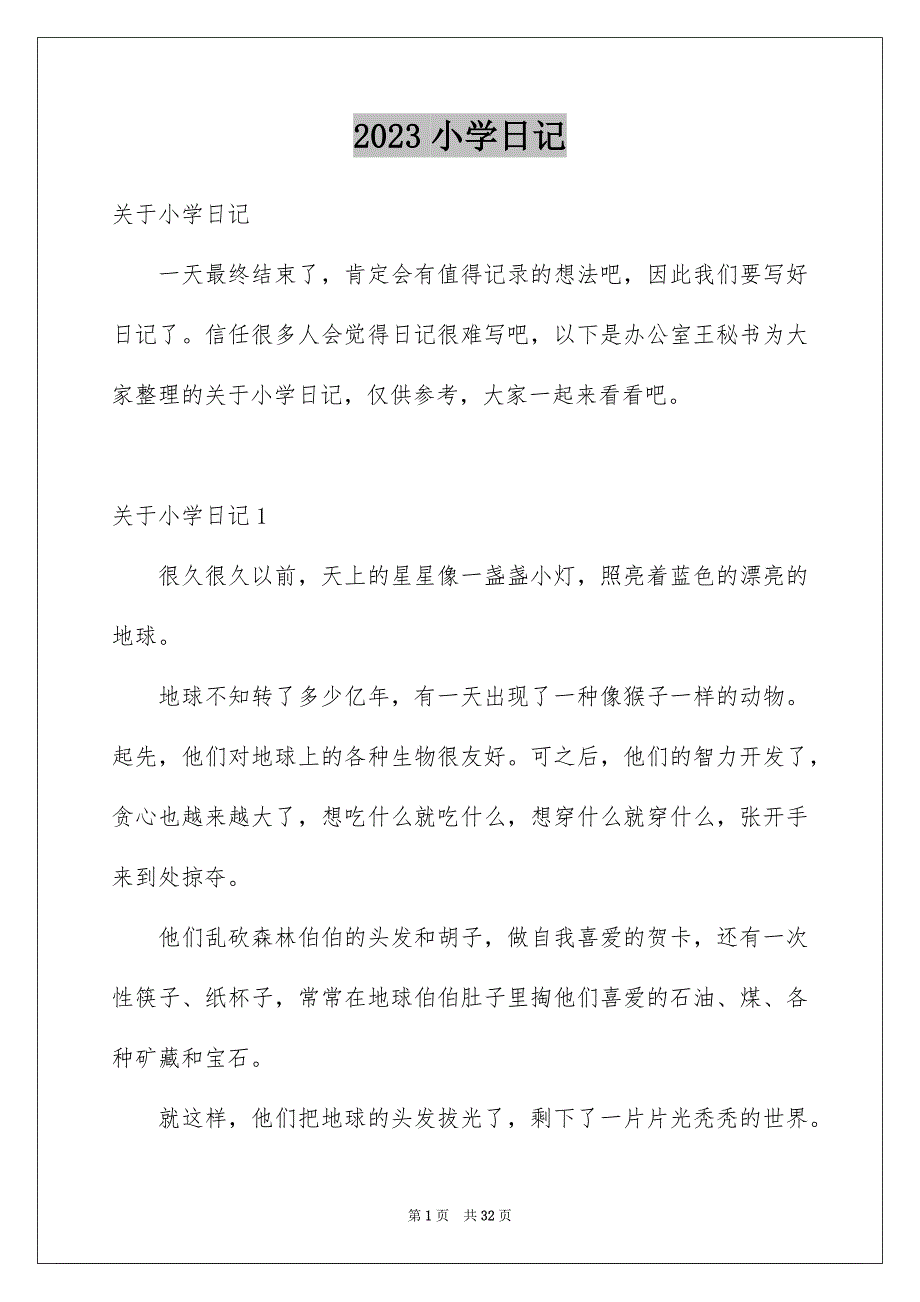 2023小学日记
关于小学日记
一天最终结束了，肯定会有值得记录的想法吧，因此我们要写好
日记了。信任很多人会觉得日记很难写吧，以下是办公室王秘书为大
家整理的关于小学日记，仅供参考，大家一起来看看吧。
关于小学日记1
很久很久以前，天上的星星像一盏盏小灯，照亮着蓝色的漂亮的
地球。
地球不知转了多少亿年，有一天出现了一种像猴子一样的动物。
起先，他们对地球上的各种生物很友好。可之后，他们的智力开发了，
贪心也越来越大了，想吃什么就吃什么，想穿什么就穿什么，张开手
来到处掠夺。
他们乱砍森林伯伯的头发和胡子，做自我喜爱的贺卡，还有一次
性筷子、纸杯子，常常在地球伯伯肚子里掏他们喜爱的石油、煤、各
种矿藏和宝石。
就这样，他们把地球的头发拔光了，剩下了一片片光秃秃的世界。
第1页 共32页